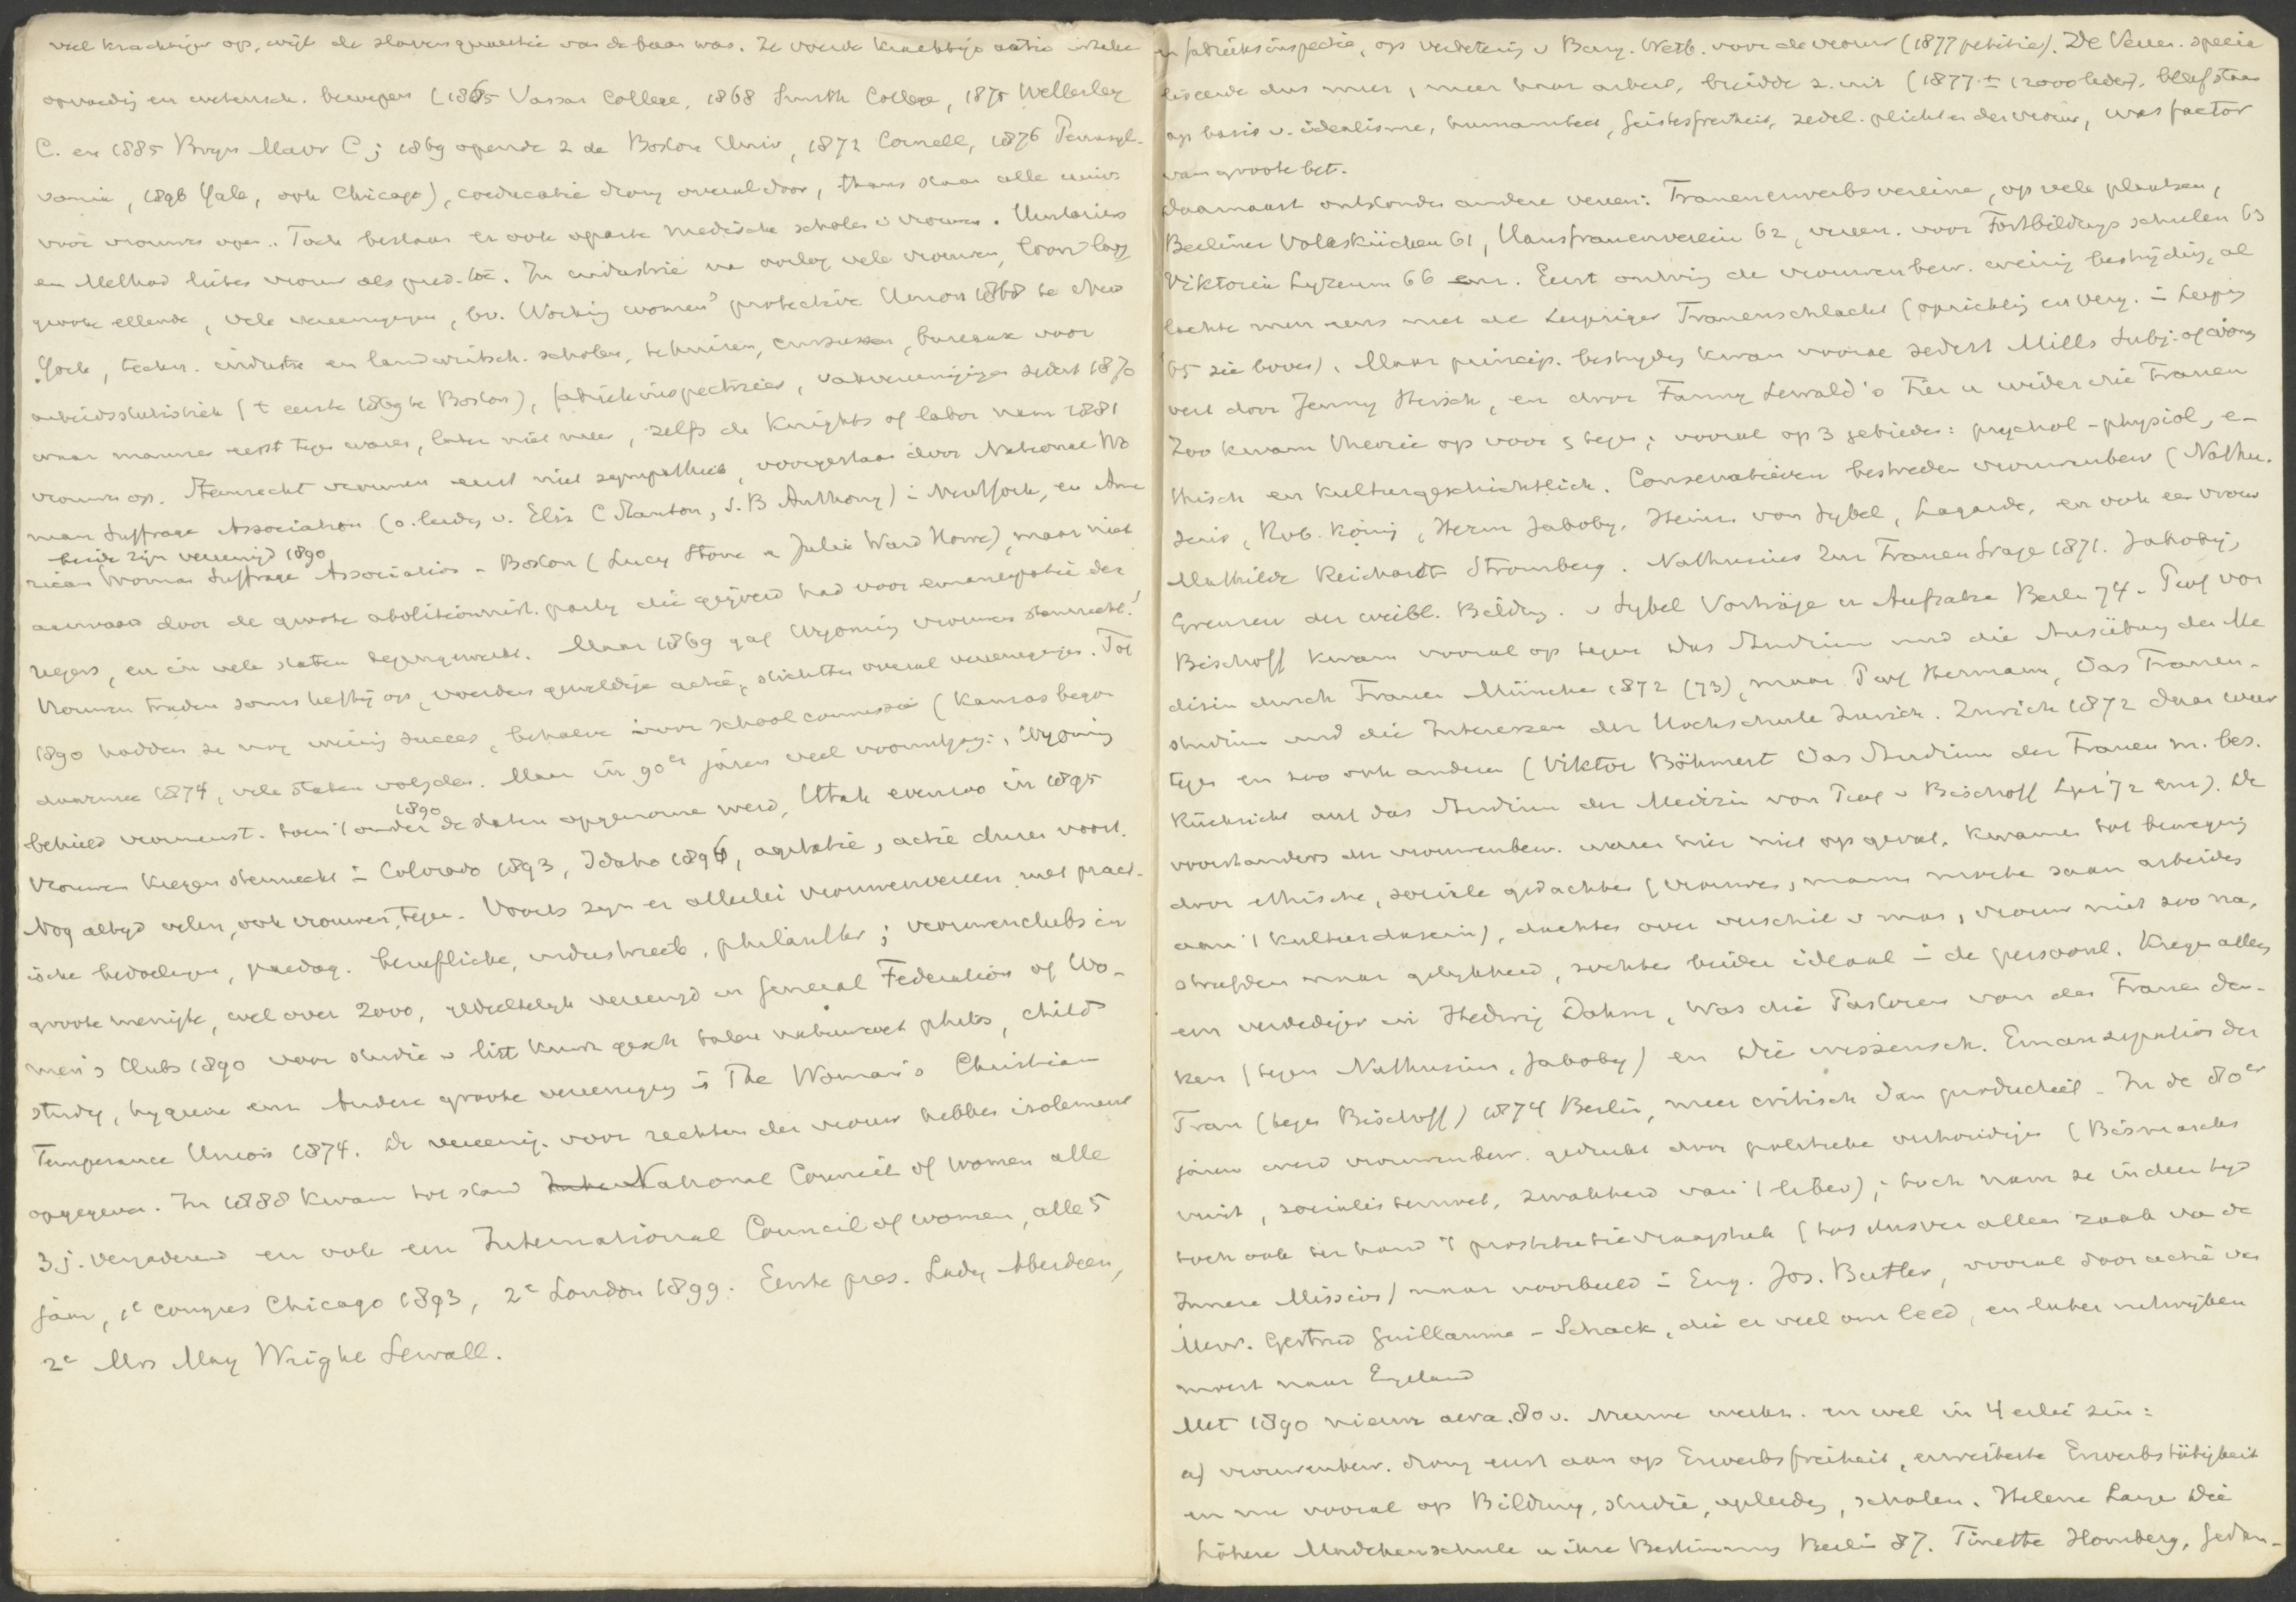 veel krachtiger op, wijl de slavenquaestie van de baan was. Ze voerde krachtige actie inzake
opvoeding en wetensch. beroepen (1865 Vassar College, 1868 Smith College, 1875 Wellesley
C. en 1885 Bryn Mawr C; 1869 opende z de Boston Univ, 1872 Cornell, 1876 Pennsyl-
vania, 1896 Yale, ook Chicago), coeducatie drong overal door, thans staan alle univ.
voor vrouwen open. Toch bestaan er ook aparte medische scholen v vrouwen. Unitariers
en Method lieten vrouw als pred. toe. In industrie na oorlog vele vrouwen, loon laag
groote ellende, vele vereenigingen, bv. Working women's protective Union 1868 te New
York, techn. industr en landwirtsch. scholen, cursussen, bureaux voor
arbeidsstatistiek (t eerste 1869 te Boston), fabriekinspectrices, vakvereenigingen sedert 1870
waar mannen eerst tegen waren, later niet meer, zelfs de Knights of labor nam 1881
vrouwen op. Stemrecht vrouwen eerst niet sympathiek, voorgestaan door National Wo
man Suffrage Association (o. leidg v. Eliz C Stanton, S. B Anthony) i NewYork, en Ame
beide zijn vereenigd 1890
rican Woman Suffrage Association - Boston (Lucy Stone en Julia Ward Howe), maar niet
aanvaard door de groote abolitionnist. party die geijverd had voor emancipatie der
negers, en in vele staten tegengewerkt. Maar 1869 gaf Wyoming vrouwen stemrecht!
Vrouwen traden soms heftig op, voerden geweldige actie, stichtten overal vereenigingen. Tot
1890 hadden ze nog weinig succes, behalve voor school commissie (Kansas begon
daarmee 1874, vele staten volgden. Maar in 90er jaren veel vooruitgang:, Wyoming
1890
behield vrouwenst. toen 't onder de staten opgenomen werd, Utah evenzoo in 1895
Vrouwen kregen stemrecht i Colorado 1893, Idaho 1896, agitatie, actie duren voort.
Nog altijd velen, ook vrouwen, tegen. Voorts zijn er allerlei vrouwenvereen. met pract-
ische bedoelingen, paedag. berufliche, industrieele, philanthr; vrouwenclubs in
groote menigte, wel over 2000, gedeeltelyk vereenigd in General Federation of Wo-
men's Clubs 1890 voor studie v litt kunst gesch talen natuurwet philos, child
study, hygiene enz Andere groote vereeniging is The Woman's Christian
Temperance Union 1874. De vereenig. voor rechten der vrouw hebben isolement
opgegeven. In 1888 kwam tot stand National Council of women alle
3 j. vergaderend en ook een International Council of women, alle 5
jaar, 1e congres Chicago 1893, 2e London 1899. Eerste pres. Lady Aberdeen,
2e Mrs May Wright Sewall.
en fabrieksinspectie, op verbetering v Burg. Wetb. voor de vrouw (1877 petitie). De Veree. specia
liseerde dus meer, meer haar arbeid, breidde z. uit (1877 ± 12000 leden), bleef staan
op basis v. idealisme, humaniteit, Geistesfreiheit, zedel. plichten der vrouw, was factor
van groote bet.
Daarnaast ontstonden andere vereen: Frauenerwerbsvereine, op vele plaatsen,
Berliner Volksküchen 61, Hausfrauenverein 62, vereen. voor Fortbildungsschulen 63
Viktoria Lyzeum 66 enz. Eerst ontving de vrouwenbew. weinig bestrijding, al
lachte men eens met de Leipziger Frauenschlacht (oprichting en verg. i Leipzig
65 zie boven). Maar princip. bestrijding kwam vooral sedert Mills Subj. of women
vert door Jenny Hirsch, en door Fanny Lewald's Für u wider die Frauen
Zoo kwam theorie op voor & tegen; vooral op 3 gebieden: psychol-physiol, e-
thisch en kulturgeschichtlich. Conservatieven bestreden vrouwenbew (Nathu.
sius, Rob. König, Herm Jakoby, Heinr. von Sybel, Lagarde, en ook een vrouw
Mathilde Reichardt Stromberg. Nathusius Zur Frauenfrage 1871. Jakoby,
Grenzen der weibl. Bildung. v Sybel Vorträge u Aufsätze Berlin 74 - Prof von
Bischoff kwam vooral op tegen Das Studium und die Ausübung der Me
dizin durch Frauen München 1872 (73), maar Prof Hermann, Das Frauen-
studium und die Interessen der Hochschule Zurich. Zurich 1872 daar weer
tegen en zoo ook andere (Viktor Böhmert Das Studium der Frauen m. bes.
Rücksicht auf das Studium der Medizin von Prof v Bischoff Lpz '72 enz). De
voorstanders der vrouwenbew. waren hier niet op gevat. Kwamen tot beweging
door ethische, sociale gedachten (vrouwen, mann moeten saam arbeiden
aan 't kulturdasein), dachten over verschil v man, vrouw niet zoo na,
streefden naar gelykheid, zochten beider ideaal i de persoonl. Kregen alleen
een verdediger in Hedwig Dohm, Was die Pastoren von den Frauen den-
ken (tegen Nathusius, Jakoby) en Die wissensch. Emanzipation der
Frau (tegen Bischoff) 1874 Berlin, meer critisch dan productief - In de 80er
jaren werd vrouwenbew. gedrukt door politieke verhoudingen (Bismarcks
, socialistenwet, zwakheid van 't liber); toch nam ze in dien tijd
toch ook ter hand 't prostitutievraagstuk (tot dusver alleen zaak va de
Innere Mission) naar voorbeeld i Eng. Jos. Butler, vooral door actie van
Mevr. Gertrud Guillaume - Schack, die er veel om leed, en later uitwijken
moest naar Engeland
Met 1890 nieuwe aera. 80 v. Nieuwe werkz. en wel in 4 erlei zin:
a) vrouwenbew. drong eerst aan op Erwerbsfreiheit, erweiterte Erwerbstätigkeit
en nu vooral op Bildung, studie, opleiding, scholen. Helene Lange Die
höhere Madchenschule u ihre Bestimmung Berlin 87. Tinette Homberg, Gedan-